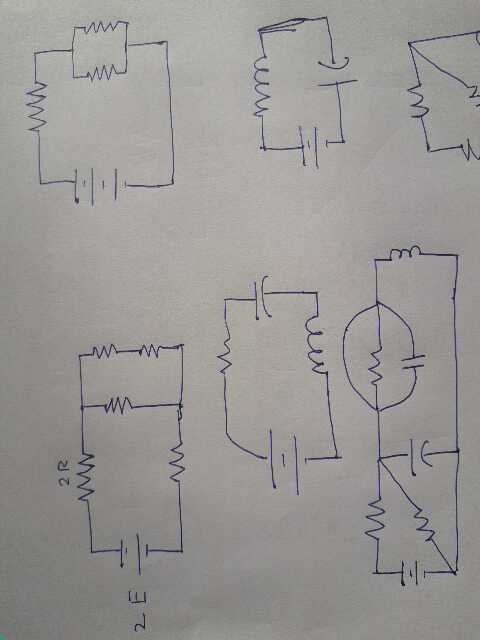 2R
2E